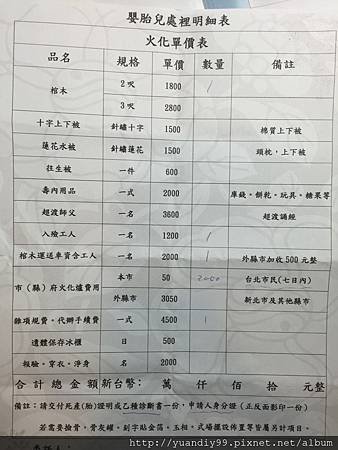 嬰胎兒處裡明細表
火化單價表
品名 規格 單價 數量 備註
棺木 2呎 1800 1
3呎 2800
十字上下被 針繡十字 1500 棉質上下被
蓮花水被 針繡蓮花 1500 頭枕，上下被
往生被 一件 600
壽內用品 一式 2000 庫錢。餅乾。玩具。糖果等
超渡師父 一名 3600 超渡誦經
入殮工人 一名 1200 1
棺木運送車資含工人 一名 2000 1 外縣市加收500元整
市（縣）府火化爐費用 本市 50 台北市民(七日內)
外縣市 3050 新北市及其他縣市
雜項規費。代辦手續費 一式 4500 1
遺體保存冰櫃 日 500
報驗。穿衣。淨身 名 2000
合計總金額新台幣： 萬 仟 佰 拾 元整
備註：請交付死產(胎)證明或乙種診斷書一份，申請人身分證（正反面影印一份）
若需要撿骨。骨灰罐。刻字貼金箔。玉相。式場擺設佈置等皆屬另計項目。
http://yuandiy99.pixnet.net/album